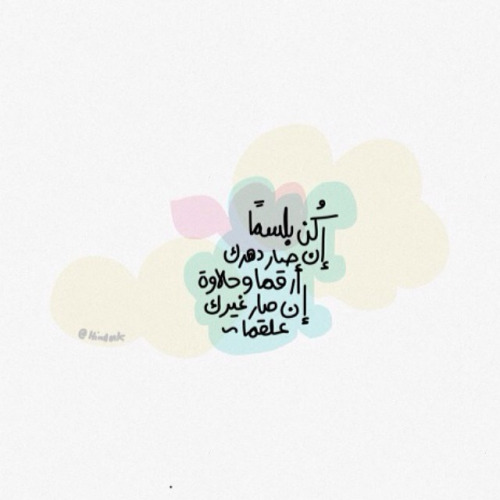 كُن بلسمًا
إن صار دهرك
أرقما وحلاوة
إن صار غيرك
علقما ~